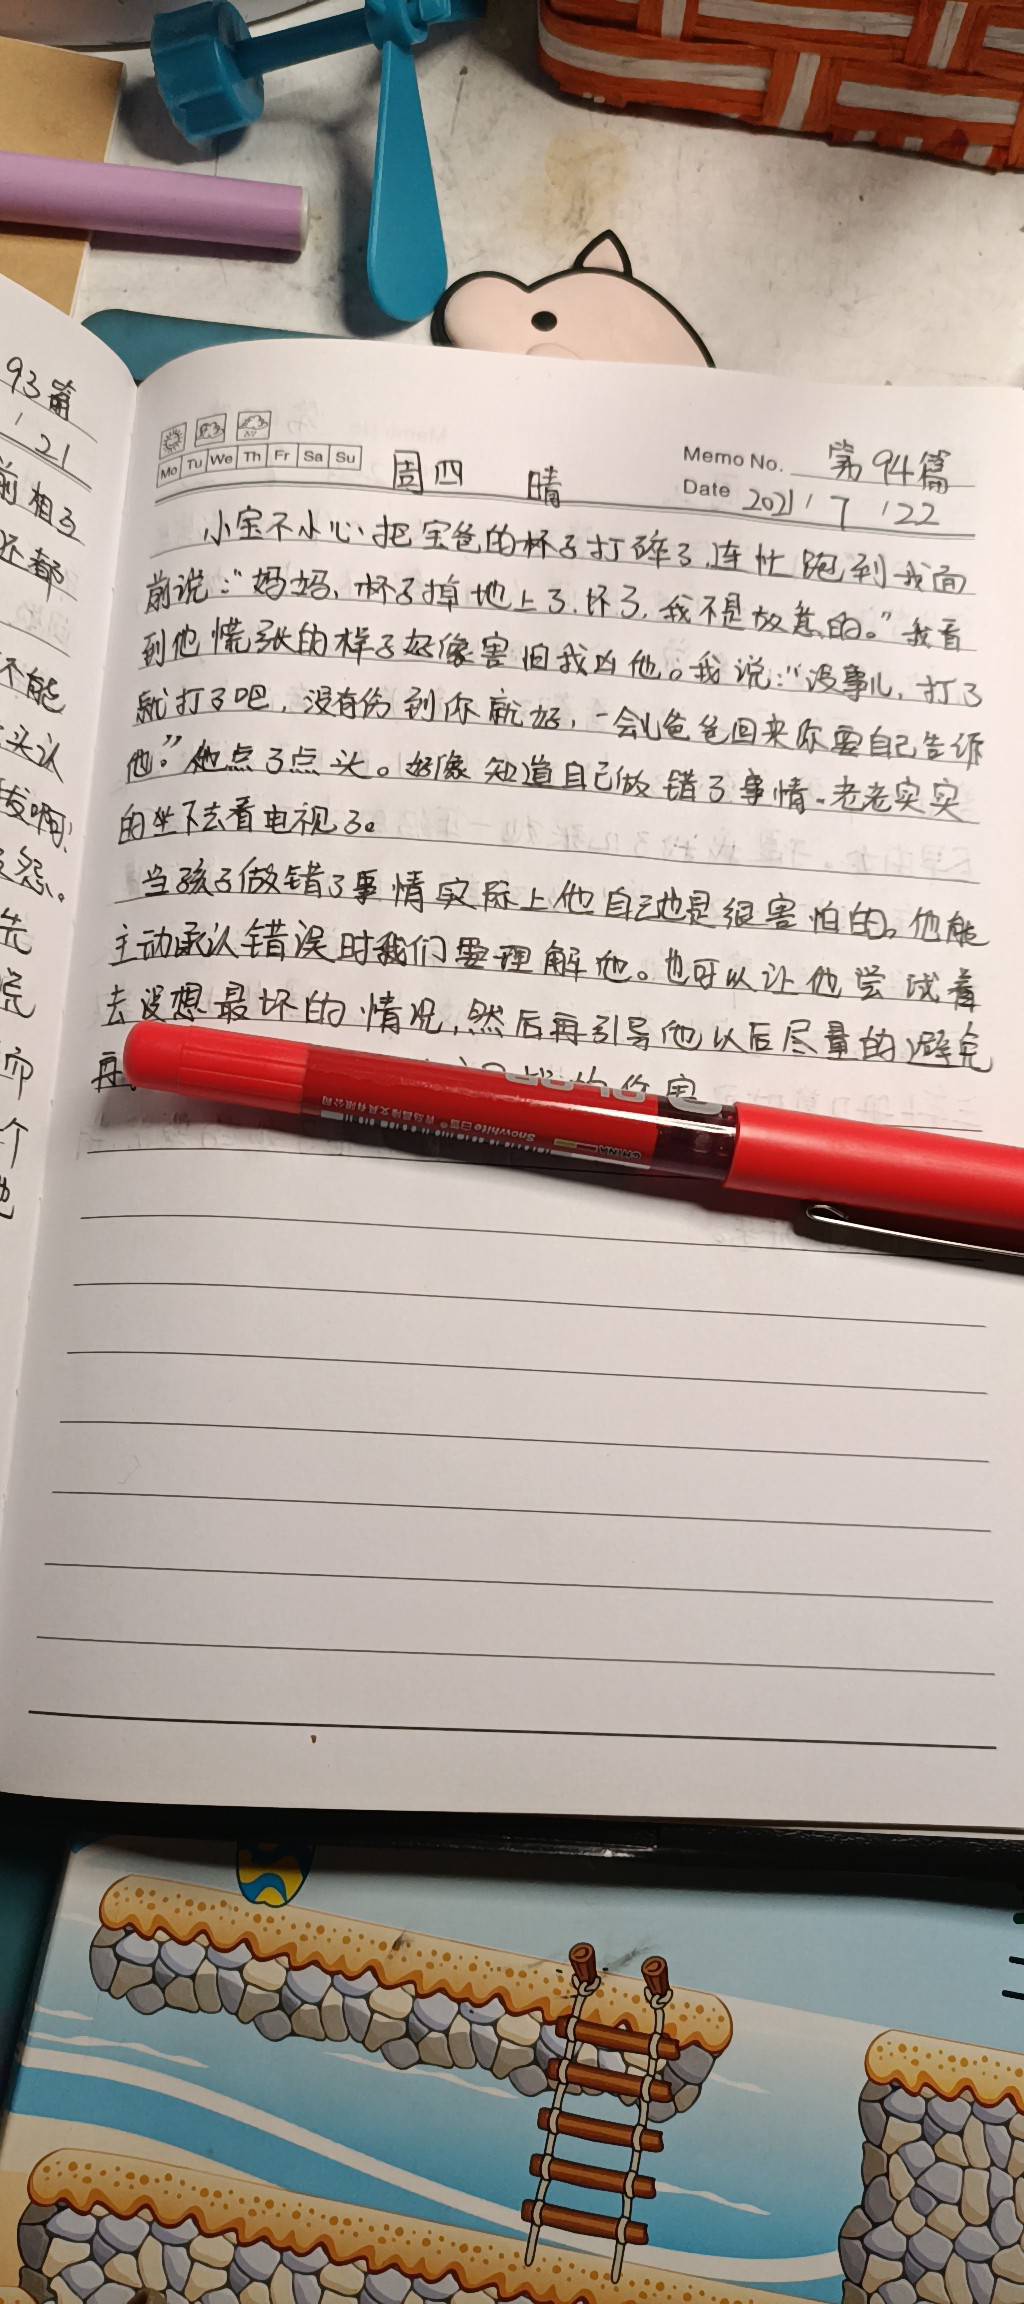 93篇
21
前相互
还都
不能
头认
找啊
怨。
先
而
个
他
Mo Tu We Th Fr Sa Su
周四 晴
Memo No. 第94篇
Date 2021 / 7 / 22
小宝不小心把宝爸的杯子打碎了,连忙跑到我面
前说:“妈妈、杯子掉地上了.坏了,我不是故意的。”我看
到他慌张的样子好像害怕我凶他。我说:“没事儿,打了
就打了吧,没有伤到你就好,一会儿爸爸回来你要自己告诉
他。”他点了点头。好像知道自己做错了事情。老老实实
的坐下去看电视了。
当孩子做错了事情实际上他自己也是很害怕的。他能
主动承认错误时我们要理解他。也可以让他尝试着
去设想最坏的情况,然后再引导他以后尽量的避免
再
的伤害
Snowhite白雪® 青岛昌隆文具有限公司
CHINA